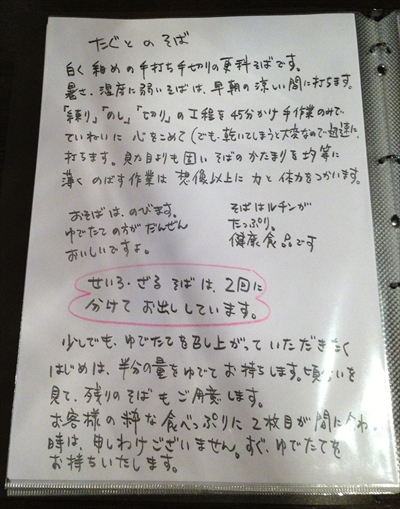 たぐとのそば
白く細めの手打ち手切りの更科そばです。
暑さ、湿度に弱いそばは、早朝の涼しい間に打ちます。
「練り」「のし」「切り」の工程を45分かけ手作業のみで
ていねいに心をこめて(でも、乾いてしまうと大変なので迅速に)
打ちます。見た目よりも固いそばのかたまりを均等に
薄くのばす作業は想像以上に力と体力をつかいます。
おそばは、のびます。
ゆでたての方がだんぜん
おいしいですよ。
そばはルチンが
たっぷり。
健康食品です
せいろ・ざるそばは、2回に
分けてお出ししています。
少しでも、ゆでたてを召し上がっていただきたく
はじめは、半分の量をゆでてお持ちします。頃合いを
見て、残りのそばもご用意します。
お客様の粋な食べっぷりに2枚目が間に合わ
時は、申しわけございません。すぐ、ゆでたてを
お持ちいたします。